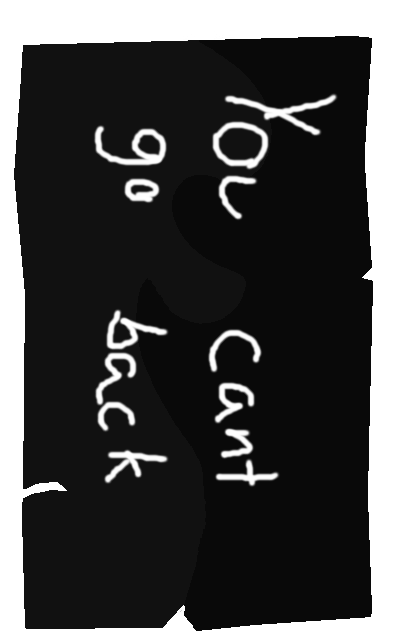 You cant
go back